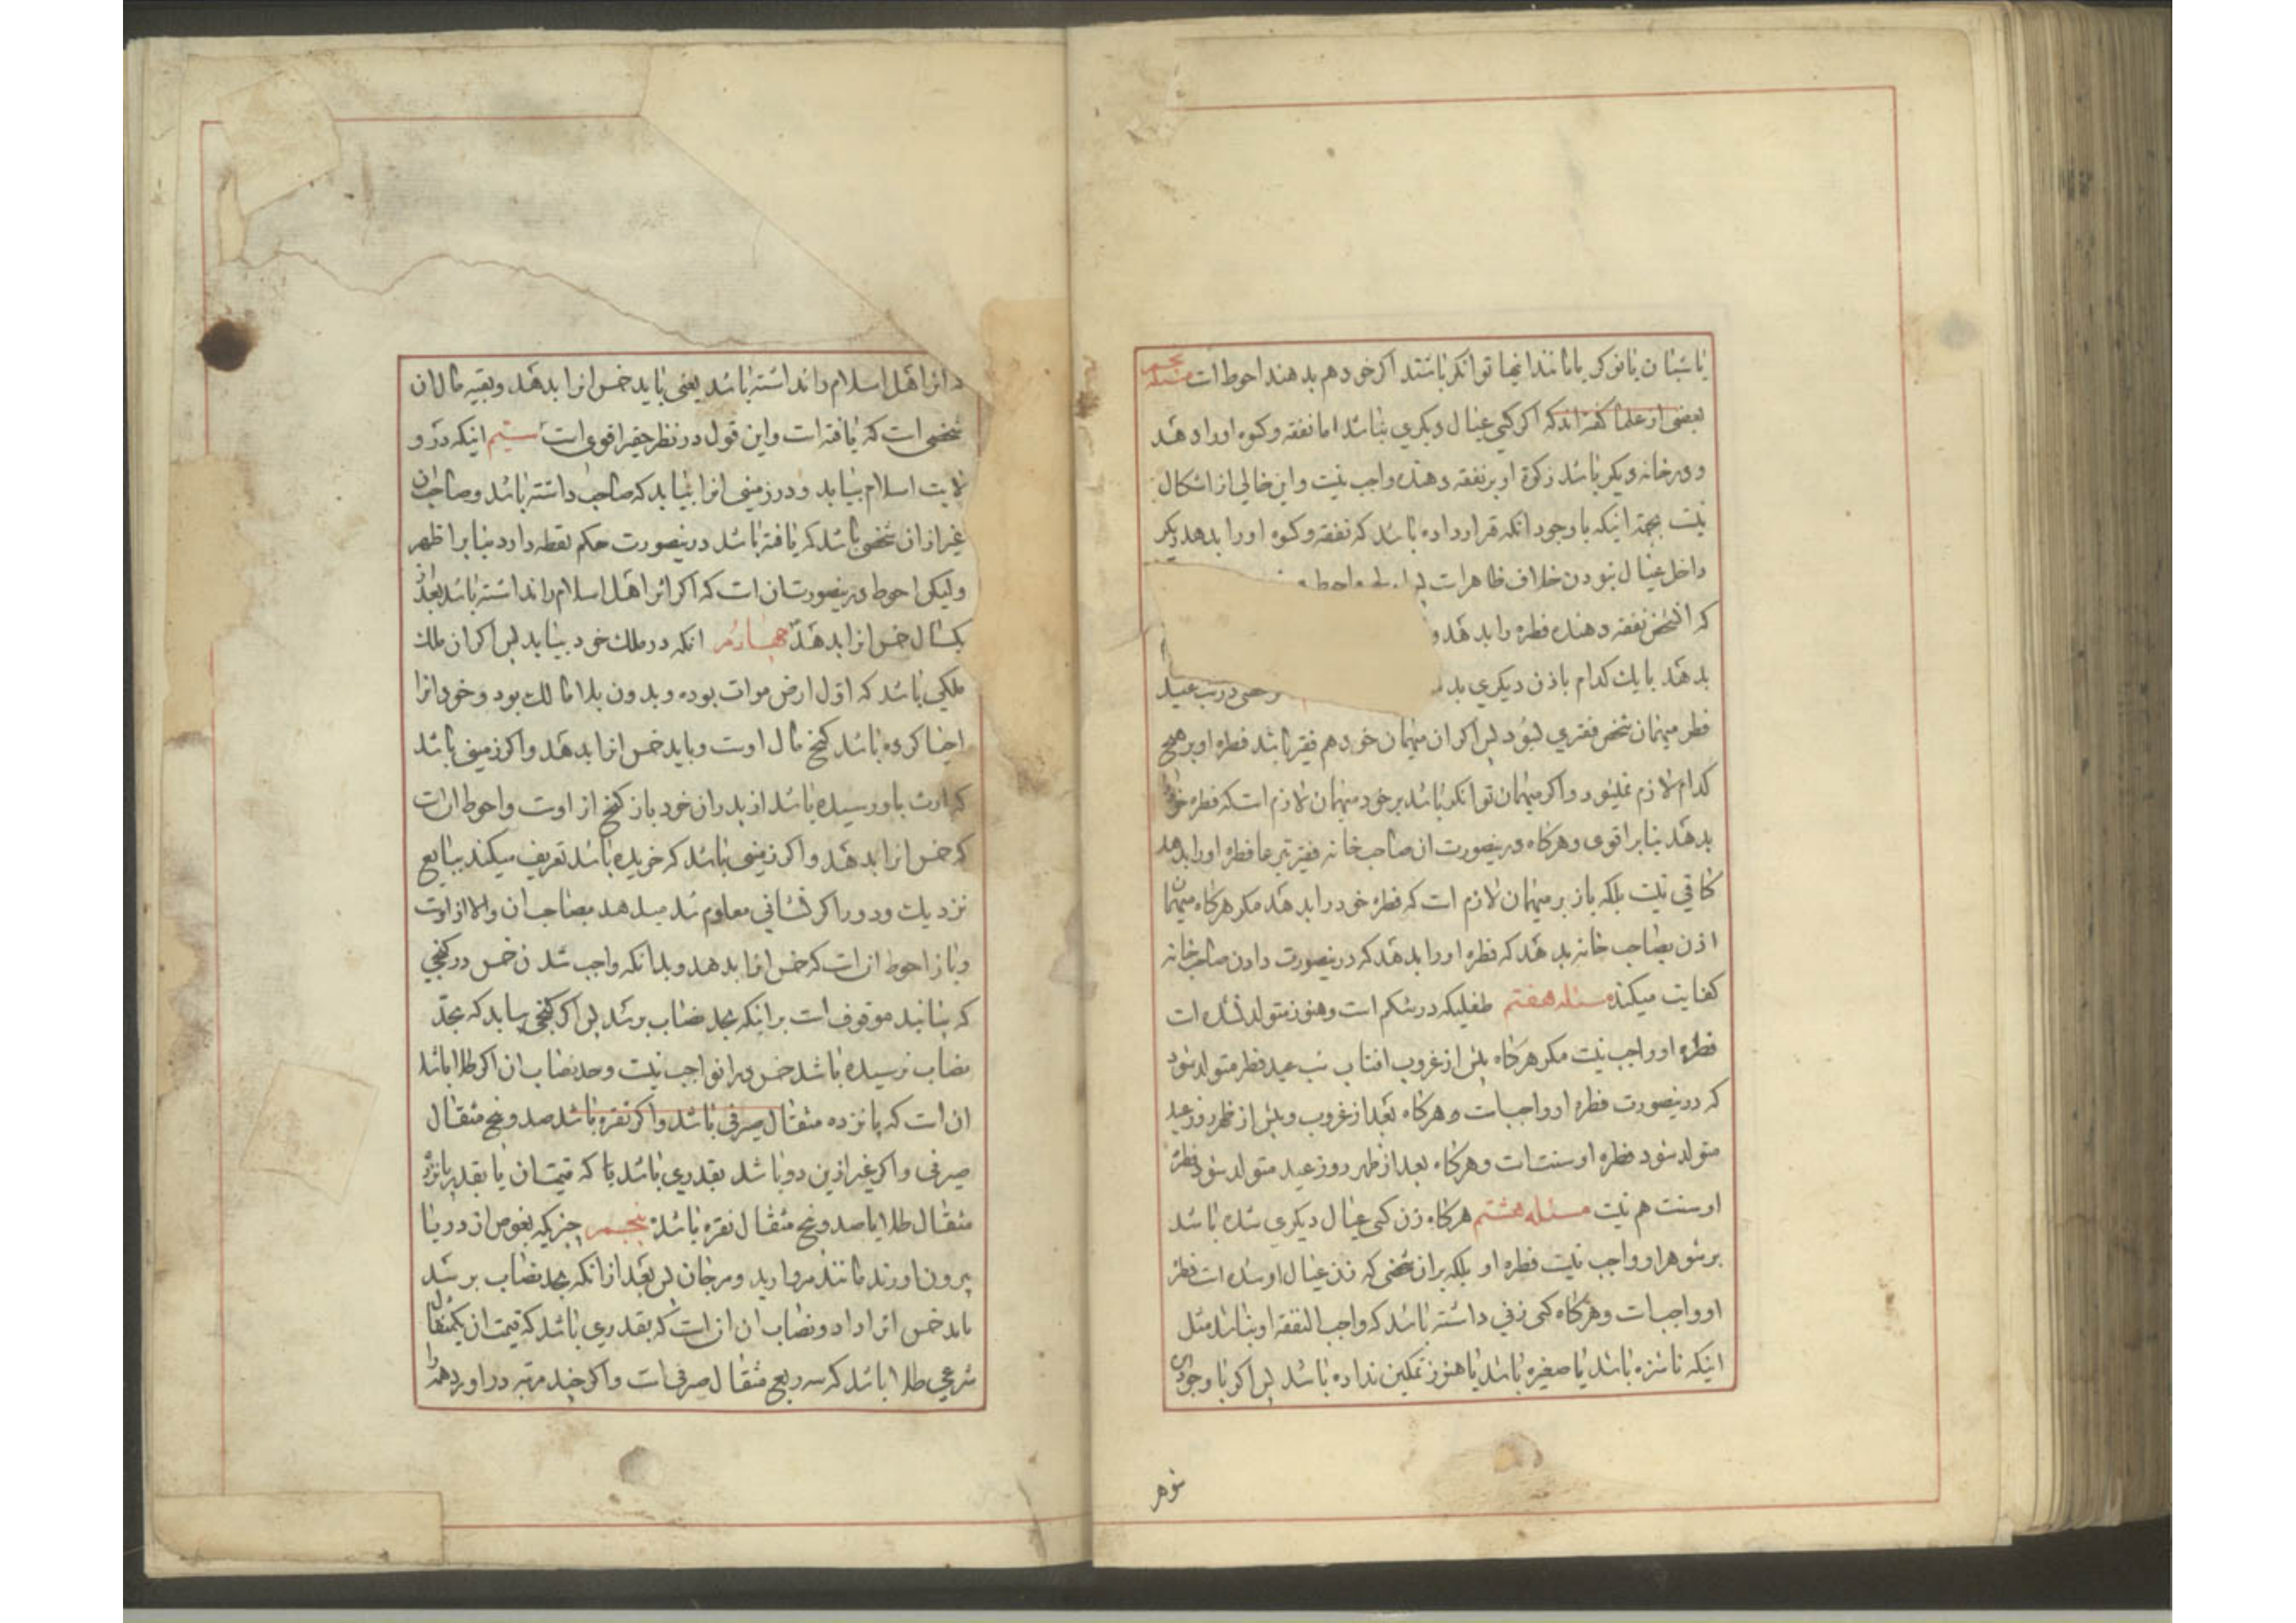 یا شبان یا نوکر یا مانند اینها توانکر باشند اکر خود هم بدهند احوط است مسئله
بعضی از علما کفته اند که اکر کسی عیال دیکری نباشد اما نفقه و کسوه او را دهد
و در خانه دیکر باشد زکوة او بر نفقه دهنده واجب نیست و این خالی از اشکال
نیست بجهة اینکه با وجود انکه قرار داده باشد که نفقه و کسوه او را بدهد دیکر
داخل عیال نبودن خلاف ظاهر است واحوط
که انشخص نفقه دهنده فطره را بدهد و
بدهد با یک کدام باذن دیکری در شب عید
فطر میهمان شخص فقیری بشود پس اکر ان میهمان خود هم فقیر باشد فطره او بر هیچ
کدام لازم نمیشود و اکر میهمان توانکر باشد بر خود میهمان لازم است که فطره خود
بدهد بنا بر اقوی و هرکاه درینصورت ان صاحب خانه فقیر تبرعا فطره او را بدهد
کافی نیست بلکه باز بر میهمان لازم است که فطره خود را بدهد مکر هرکاه میهمان
اذن بصاحب خانه بدهد که فطره او را بدهد که درینصورت دادن صاحب خانه
کفایت میکند مسئله هفتم طفلیکه در شکم است و هنوز متولد نشده است
فطره او واجب نیست مکر هرکاه پیش از غروب افتاب شب عید فطر متولد شود
که درینصورت فطره او واجبست و هرکاه بعد از غروب و پیش از ظهر روز عید
متولد شود فطره او سنت است و هرکاه بعد از ظهر روز عید متولد شود فطره
او سنت هم نیست مسئله هشتم هرکاه زن کسی عیال دیکری شده باشد
بر شوهر او واجب نیست فطره او بلکه بر ان شخصی که زن عیال او شده است فطره
او واجبست و هرکاه کسی زنی داشته باشد که واجب النفقه او نباشد مثل
اینکه ناشزه باشد یا صغیره باشد یا هنوز تمکین نداده باشد پس اکر با وجود این
شوهر
اثر اهل اسلام را نداشته باشد یعنی باید خمس انرا بدهد و بقیه مال ان
شخصی است که یافته است و این قول در نظر حقیر اقوی است سیم اینکه در و
لایت اسلام بیابد و در زمینی انرا بیابد که صاحب داشته باشد و صاحب ان
غیر از ان شخصی باشد که یافته باشد درینصورت حکم لقطه دارد بنا بر اظهر
ولیکن احوط درینصورت ان است که اکر اثر اهل اسلام را نداشته باشد بعد از
یکسال خمس انرا بدهد چهارم انکه در ملک خود بیابد پس اکر ان ملک
ملکی باشد که اول ارض موات بوده و بدون بلا مالک بود و خود انرا
احیا کرده باشد کنج مال اوست و باید خمس انرا بدهد و اکر زمینی باشد
که ارث باو رسیده باشد از پدران خود باز کنج از اوست و احوط ان است
که خمس انرا بدهد و اکر زمینی باشد که خریده باشد تعریف میکند ببایع
نزدیک و دور اکر نشانی معلوم شد میدهد بصاحب ان والا از اوست
و باز احوط ان است که خمس انرا بدهد و بدانکه واجب شدن خمس در کنجی
که بیابید موقوف است بر اینکه بحد نصاب برسد پس اکر کنجی بیابد که بحد
نصاب نرسیده باشد خمس در انواجب نیست و حد نصاب ان اکر طلا باشد
ان است که پانزده مثقال صیرفی باشد و اکر نقره باشد صد و پنج مثقال
صیرفی و اکر غیر ازین دو باشد بقدری باشد تا که قیمت ان یا بقدر پانزده
مثقال طلا یا صد و پنج مثقال نقره باشد پنجم چیزیکه بغوص از دریا
بیرون اورند مانند مروارید و مرجان پس بعد از انکه بحد نصاب برسد
باید خمس انرا داد و نصاب ان ان است که بقدری باشد که قیمت ان یکمثقال
شرعی طلا باشد که سه ربع مثقال صرفی است و اکر چند مرتبه در اورد همه را